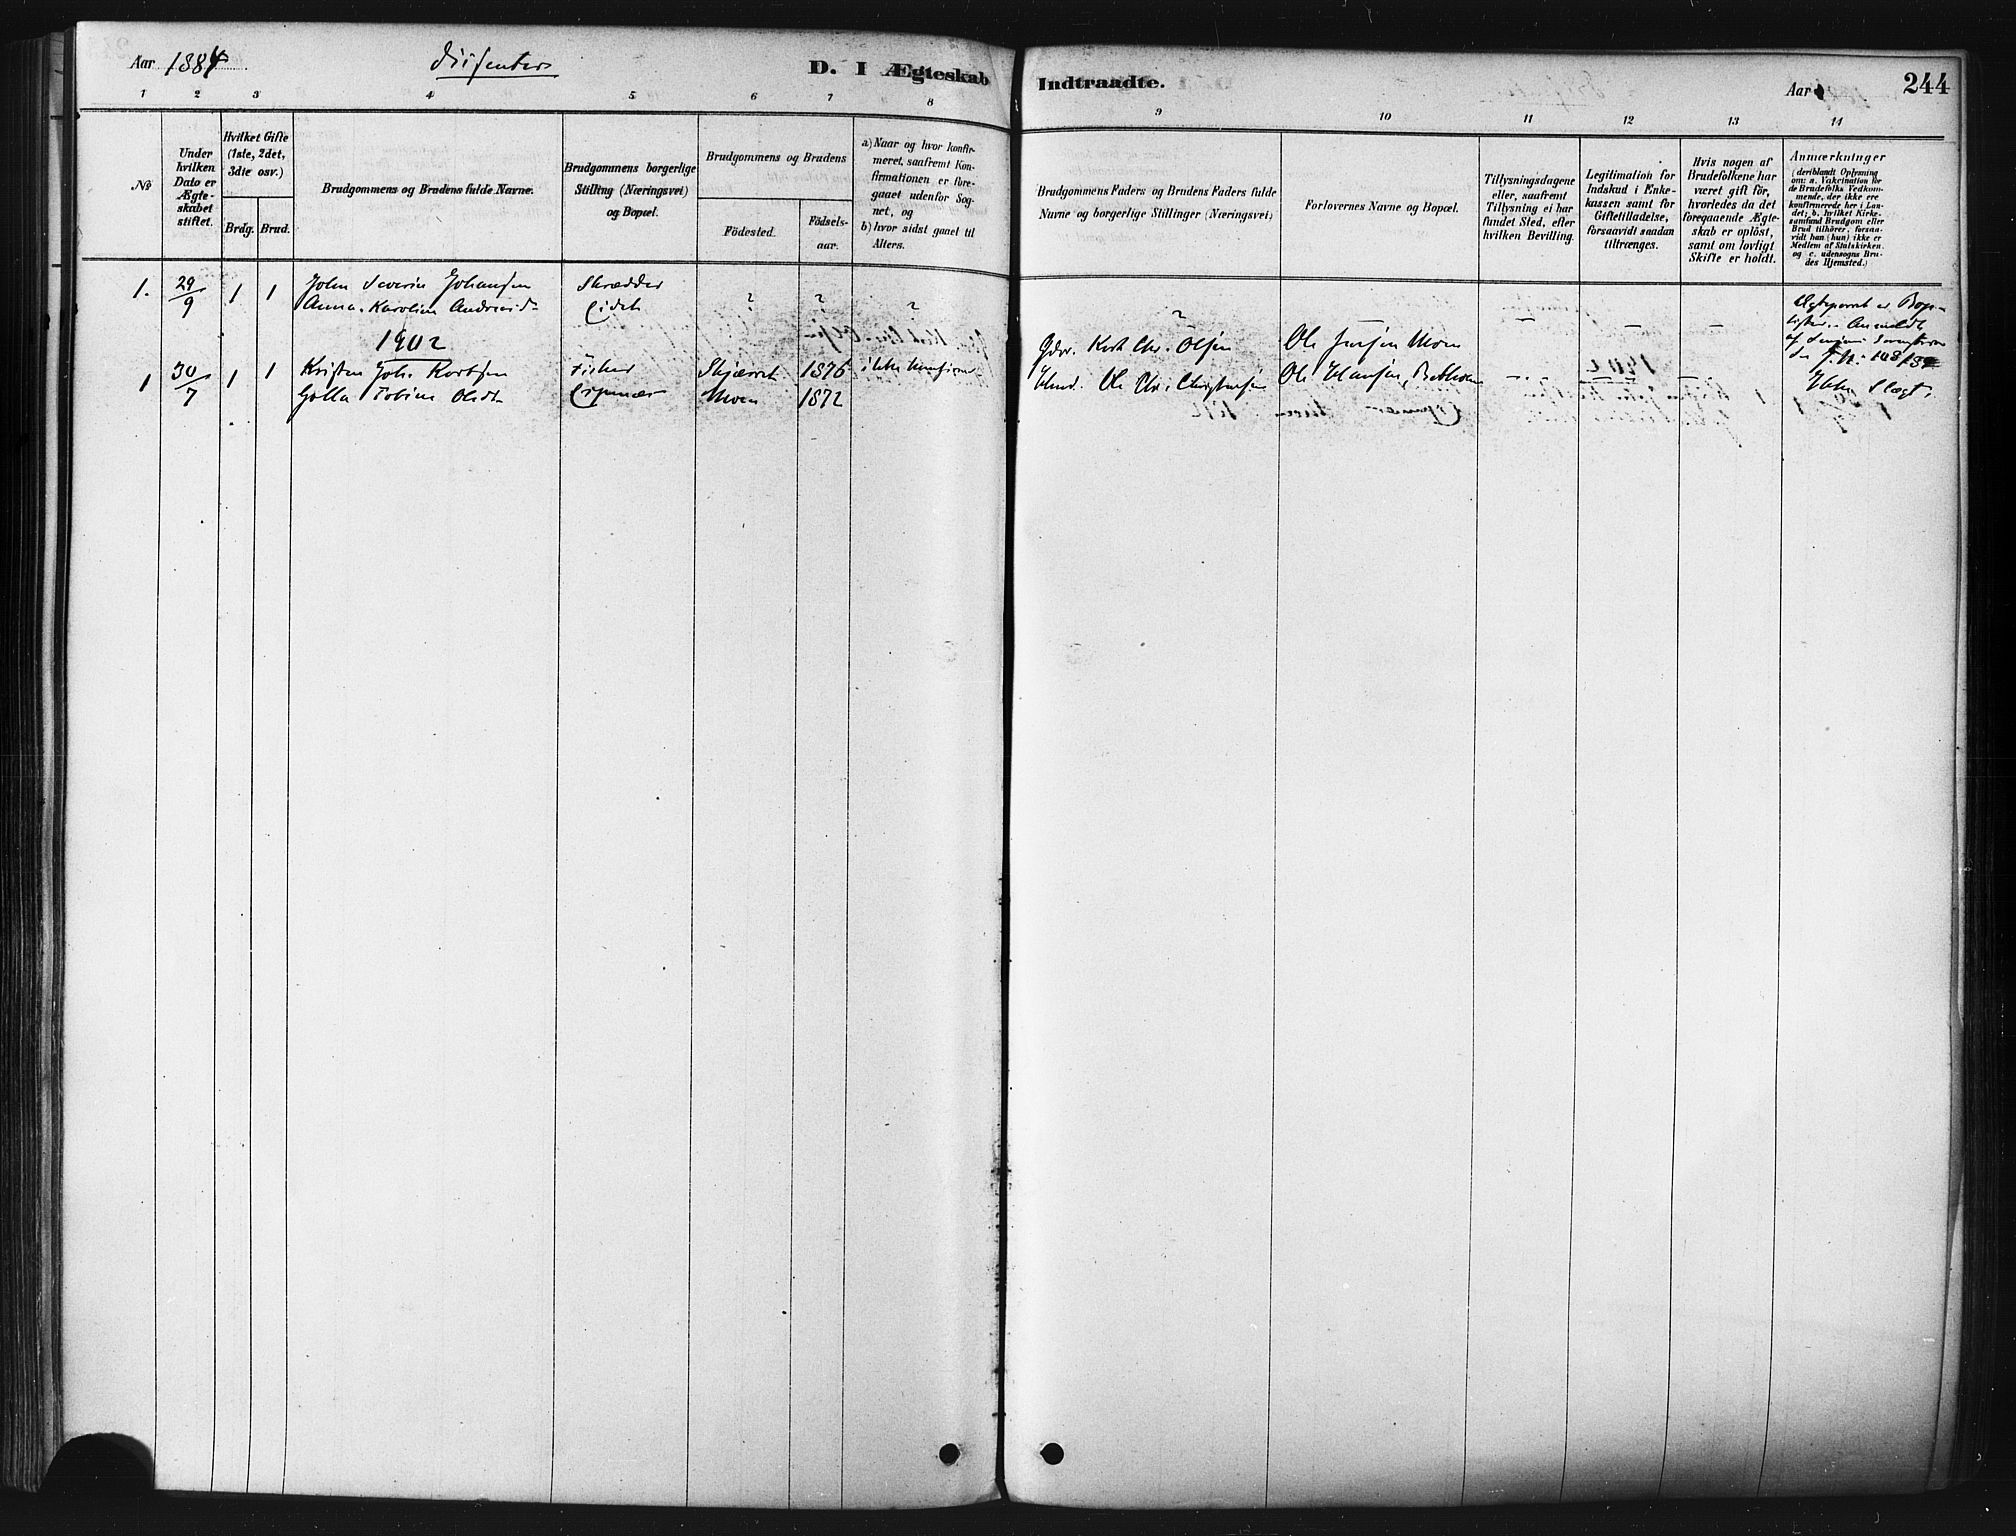 Aar 1884 Dissenter D. I Ægteskab Indtraadte. Aar 244
1 2 3 4 5 6 7 8 9 10 11 12 13 14
No
Under hvilken Dato er Ægteskabet stiftet.
Hvilket Gifte (1ste, 2det, 3die osv.)
Brdg. Brud.
Brudgommens og Brudens fulde Navne.
Brudgommens borgerlige Stilling (Næringsvei) og Bopæl.
Brudgommens og Brudens
Födested. Födsels-aar.
a) Naar og hvor konfirmeret, saafremt Konfirmationen er foregaaet udenfor Sognet, og
b) hvor sidst gaaet til Alters.
Brudgommens Faders og Brudens Faders fulde Navne og borgerlige Stillinger (Næringsvei)
Forlovernes Navne og Bopæl.
Tillysningsdagene eller, saafremt Tillysning ei har fundet Sted, efter hvilken Bevilling.
Legitimation for Indskud i Enkekassen samt for Giftetilladelse, forsaavidt saadan tiltrænges.
Hvis nogen af Brudefolkene har været gift för, hvorledes da det foregaaende Ægteskab er oplöst, samt om lovligt Skifte er holdt.
Anmærkninger
(deriblandt Oplysning om: a. Vakcination for de Brudefolks Vedkommende, der ikke ere konfirmerede her i Landet; b. hvilket Kirkesamfund Brudgom eller Brud tilhörer, forsaavidt han (hun) ikke er Medlem af Statskirken, og c. udensogns Brudes Hjemsted.)
1. 29/9 1 1 John Severin Johansen Skrædder
Anna Karoline Andreasd. Eidet ? ? ? ? — — — Ægteparret er Baptister. Anmeldt af
1902
1 30/7 1 1 Kristen Joh. Kortsen Fisker Skjærvet 1876 ikke konfirm. Gdbr. Kort Chr. Olsen Ole Jensen Moen
Golla Tobine Olsdt. Moen 1872 Ole Chr. Christensen Ole Hansen — — — Ikke Slægt.